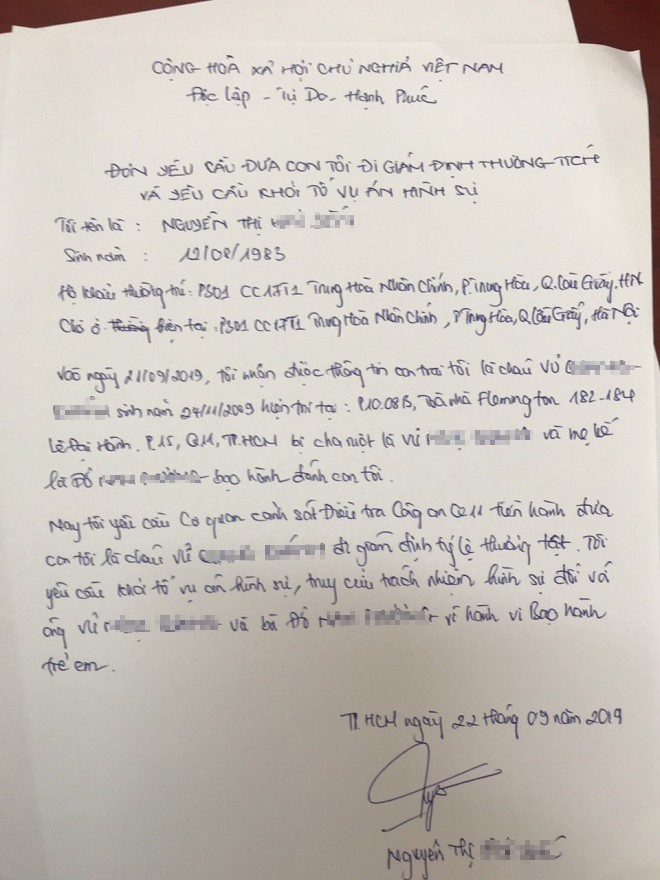 CỘNG HOÀ XÃ HỘI CHỦ NGHĨA VIỆT NAM
Độc lập - Tự Do - Hạnh Phúc
ĐƠN YÊU CẦU ĐƯA CON TÔI ĐI GIÁM ĐỊNH THƯƠNG TÍCH
VÀ YÊU CẦU KHỞI TỐ VỤ ÁN HÌNH SỰ
Tôi tên là : NGUYỄN THỊ
Sinh năm : 12/08/1983
Hộ khẩu thường trú: P301 CC17T1 Trung Hoà Nhân Chính, P.Trung Hòa, Q.Cầu Giấy, HN
Chỗ ở thường hiện tại: P301 CC17T1 Trung Hoà Nhân Chính, P Trung Hòa, Q.Cầu Giấy, Hà Nội
Vào ngày 21/09/2019, Tôi nhận được thông tin con trai tôi là cháu VŨ
sinh năm 24/11/2009 hiện trú tại: P10.08B, Toà nhà Flemington 182-184
Lê Đại Hành, P.15, Q11, TP.HCM bị cha ruột là Vũ và mẹ kế
là Đỗ bạo hành đánh con tôi.
Nay tôi yêu cầu Cơ quan cảnh sát Điều tra Công an Q11 tiến hành đưa
con tôi là cháu Vũ đi giám định tỷ lệ thương tật. Tôi
yêu cầu khởi tố vụ án hình sự, truy cứu trách nhiệm hình sự đối với
ông Vũ và bà Đỗ vì hành vi Bạo hành
trẻ em.
TP.HCM ngày 22 tháng 09 năm 2019
Nguyễn Thị